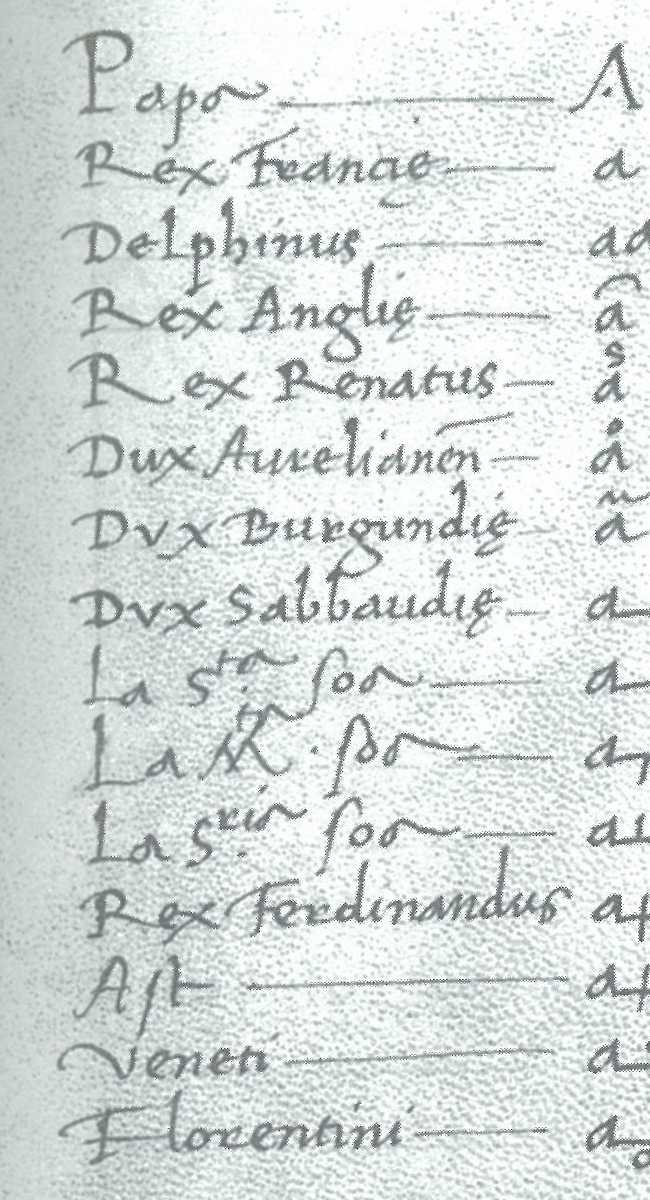 Papa A
Rex Francię a
Delphinus aa
Rex Anglię a
Rex Renatus a
Dux Aurelianeñ å
Dvx Burgundię ã
Dvx Sabbaudię a
La Sta soa a
La M. soa a
La Sria soa a
Rex Ferdinandus a
Ast a
Veneti a
Florentini a